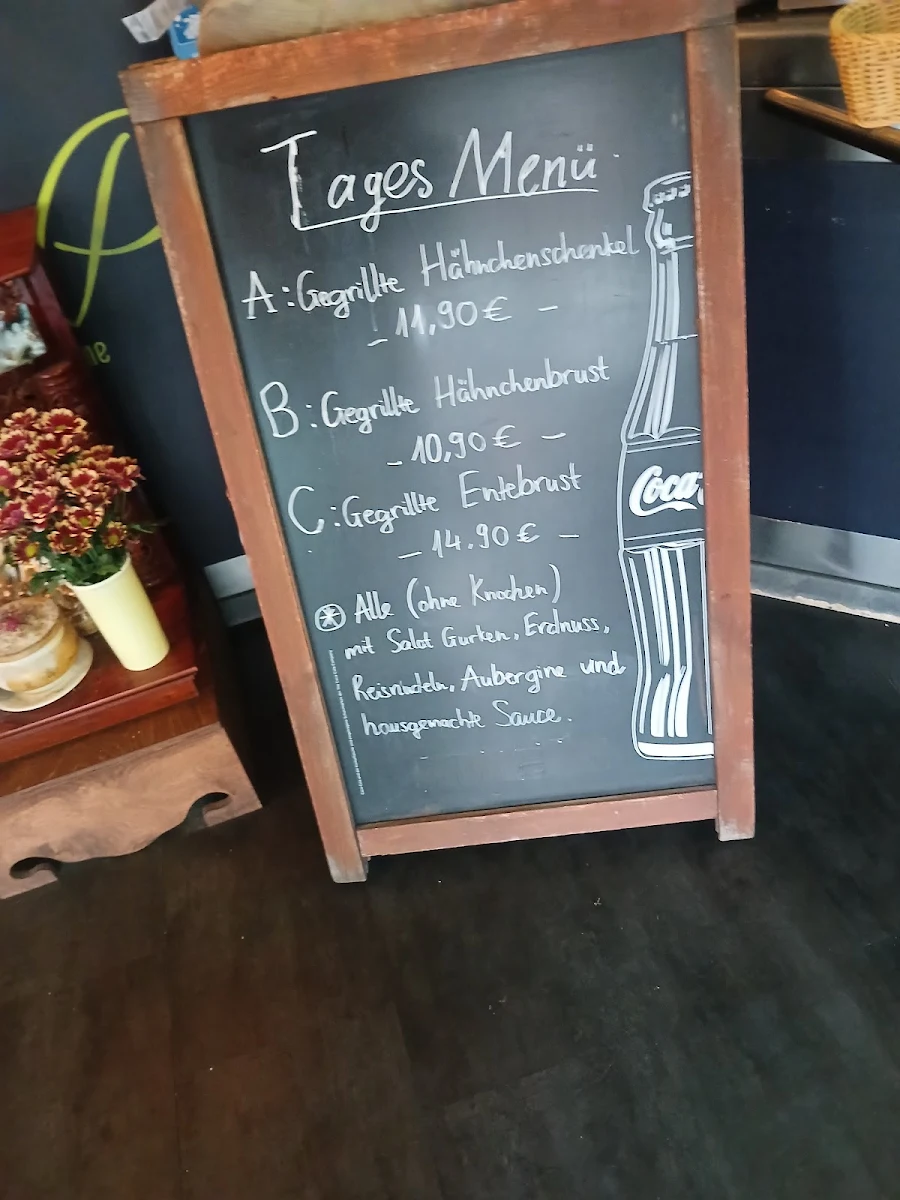 Tages Menü
A: Gegrillte Hähnchenschenkel
- 11,90 € -
B: Gegrillte Hähnchenbrust
- 10,90 € -
C: Gegrillte Entebrust
- 14.90 € -
Alle (ohne Knochen)
mit Salat Gurken, Erdnuss,
Reisnudeln, Aubergine und
hausgemachte Sauce.
Coca